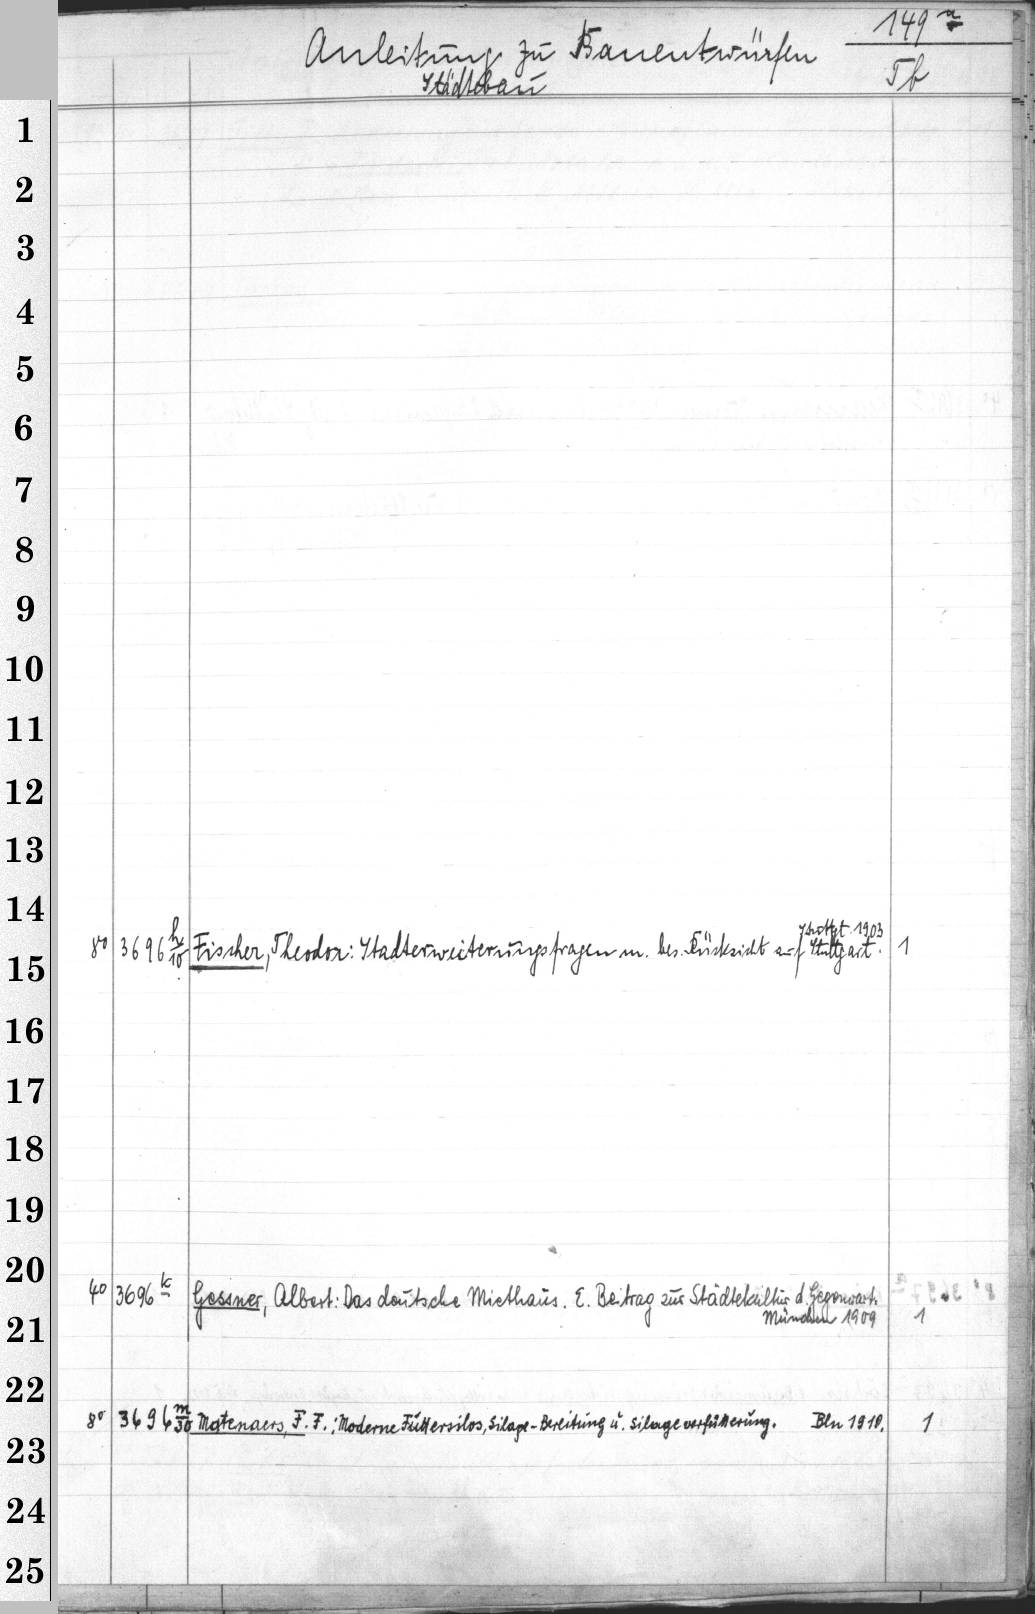 149 a
Anleitung zu Bauentwürfen
Städtebau
Tb
1
2
3
4
5
6
7
8
9
10
11
12
13
14
Stuttgt. 1903
8° 3696 h/10 Fischer, Theodor: Stadterweiterungsfragen m. bes. Rücksicht auf Stuttgart. 1
15
16
17
18
19
20
4° 3696 k Gessner, Albert: Das deutsche Miethaus. E. Beitrag zur Städtekultur d. Gegenwart.
München 1909 1
21
22
8° 3696 m/30 Matenaers, F. F.: Moderne Futtersilos, Silage-Bereitung u. Silageverfütterung. Bln 1910. 1
23
24
25